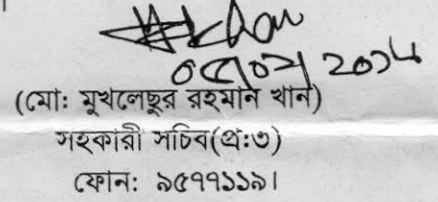 ০৫/০২/২০১৮
(মো: মুখলেছুর রহমান খান)
সহকারী সচিব(প্র:৩)
ফোন: ৯৫৭৭১১৯।